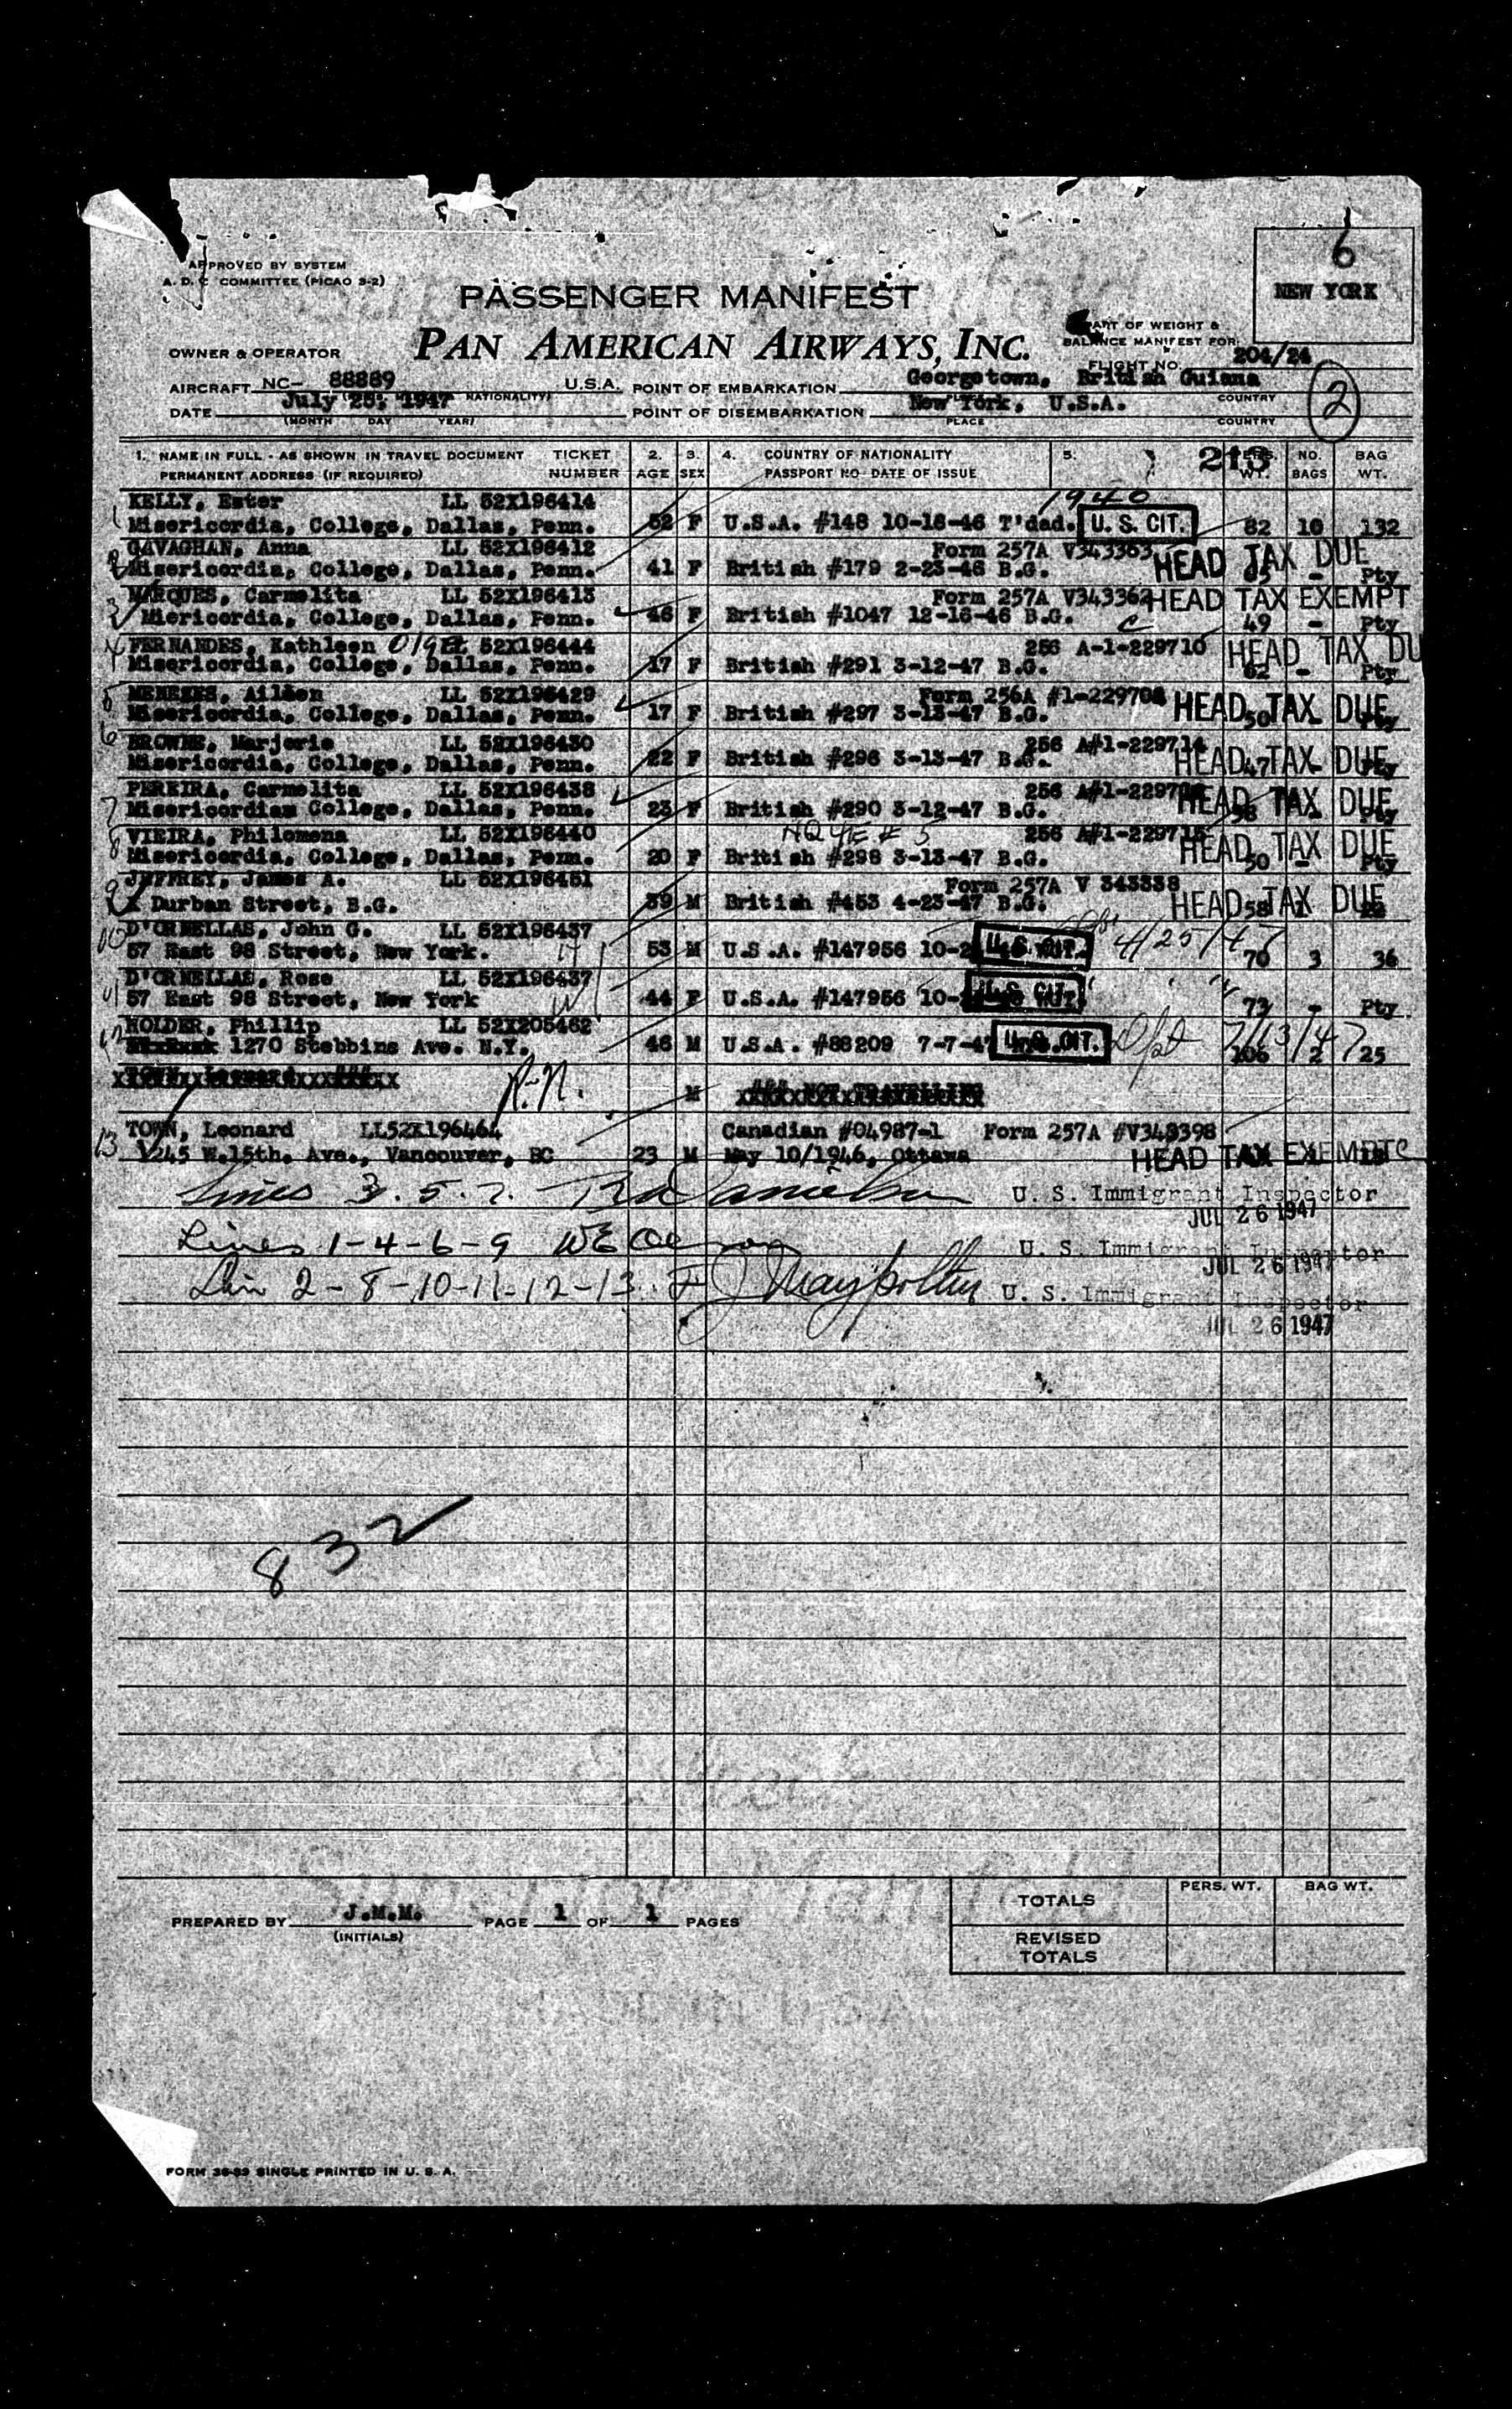 6
NEW YORK
APPROVED BY SYSTEM
A. D. C COMMITTEE (PICAO 3-2)
PASSENGER MANIFEST
PAN AMERICAN AIRWAYS, INC.
PART OF WEIGHT &
BALANCE MANIFEST FOR
FLIGHT NO. 204/24
OWNER & OPERATOR
AIRCRAFT NC- 88889 U.S.A. POINT OF EMBARKATION Georgetown, British Guiana
(NATIONALITY) COUNTRY
DATE July 25, 1947 POINT OF DISEMBARKATION New York, U.S.A.
(MONTH DAY YEAR) PLACE COUNTRY
2
1. NAME IN FULL - AS SHOWN IN TRAVEL DOCUMENT TICKET 2. 3. 4. COUNTRY OF NATIONALITY 5. 213 PERS. NO. BAG
PERMANENT ADDRESS (IF REQUIRED) NUMBER AGE SEX PASSPORT NO - DATE OF ISSUE WT. BAGS WT.
KELLY, Ester LL 52X196414 1940
1 Misericordia, College, Dallas, Penn. 52 F U.S.A. #148 10-16-46 T'dad. U. S. CIT. 82 10 132
GAVAGHAN, Anna LL 52X196412 Form 257A V343363 HEAD TAX DUE
2 Misericordia, College, Dallas, Penn. 41 F British #179 2-23-46 B.G. - Pty
MARQUES, Carmelita LL 52X196413 Form 257A V343362 HEAD TAX EXEMPT
3 Miericordia, College, Dallas, Penn. 46 F British #1047 12-16-46 B.G. C 49 - Pty
FERNANDES, Kathleen Olga LL 52X196444 256 A-1-229710 HEAD TAX DU
4 Misericordia, College, Dallas, Penn. 17 F British #291 3-12-47 B.G. 62 - Pty
MENEZES, Aileen LL 52X196429 Form 256A HEAD TAX DUE
5 Misericordia, College, Dallas, Penn. 17 F British #297 3-13-47 B.G. 50 Pty
6 BROWNE, Marjorie LL 52X196430 256 A#1-229714 HEAD TAX DUE
Misericordia, College, Dallas, Penn. 22 F British #296 3-13-47 B.G. 47 - Pty
PEREIRA, Carmelita LL 52X196438 256 HEAD TAX DUE
7 Misericordiam College, Dallas, Penn. 23 F British #290 3-12-47 B.G. Pty
8 VIEIRA, Philomena LL 52X196440 256 HEAD TAX DUE
Misericordia, College, Dallas, Penn. 20 F British #298 3-13-47 B.G. 50 - Pty
9 JEFFREY, James A. LL 52X196451 Form 257A V 343338
Durban Street, B.G. 39 M British #453 4-23-47 B.G. HEAD TAX DUE 58
10 D'ORNELLAS, John G. LL 52X196437 4/25/47
57 East 98 Street, New York. 53 M U.S.A. #147956 10-2 U. S. CIT. 70 3 36
D'ORNELLAS, Rose LL 52X196437
11 57 East 98 Street, New York 44 F U.S.A. #147956 10- U. S. CIT. " " 73 - Pty
12 HOLDER, Phillip LL 52X205462
1270 Stebbins Ave. N.Y. 46 M U.S.A. #88209 7-7-47 U. S. CIT. Dpt 7/13/47 106 2 25
M NOT TRAVELLING
TOWN, Leonard LL52X196464 Canadian #04987-1 Form 257A #V343398
13 1245 W.15th. Ave., Vancouver, BC 23 M May 10/1946, Ottawa HEAD TAX EXEMPT C
Lines 3. 5. 7. U. S. Immigrant Inspector
JUL 26 1947
Lines 1-4-6-9 U. S. Immigrant Inspector
JUL 26 1947
Lin 2-8-10-11-12-13 U. S. Immigrant Inspector
JUL 26 1947
832
PREPARED BY J.M.M. PAGE 1 OF 1 PAGES
(INITIALS)
PERS. WT. BAG WT.
TOTALS
REVISED
TOTALS
FORM 36-69 SINGLE PRINTED IN U. S. A.